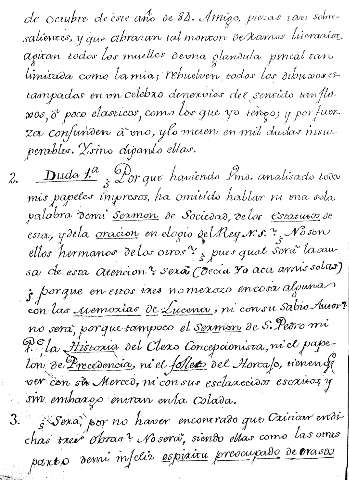 de octubre de este año de 82. Amigo, piezas tan sobre-
salientes, y que abrazan tal monton de ramos literarios,
agitan todos los muelles de una glandula pineal tan
limitada como la mia; rebuelven todos los dibuxos es-
tampados en un celebro de nervios del sentido tan flo-
xos, ó poco elasticos, como los que yo tengo; y por fuer-
za confunden á uno, y lo meten en mil dudas insu-
perables. Y sino diganlo ellas.
2. Duda 1.ª ¿Por que haviendo Vms. analisado todos
mis papeles impresos, ha omitido hablar ni una sola
palabra de mi Sermon de Sociedad, de los estatutos de
esta, y de la oracion en elogio del Rey N. S.? ¿No son
ellos hermanos de los otros? ¿pues qual será la cau-
sa de esta atencion? Será (decia yo acá a mis solas)
¿porque en estos tres no merozco en cosa alguna
con las Memorias de Lucena, ni con su Sabio Autor?
no será; porque tampoco el Sermon de S. Pedro mi
P.e la Historia del Clero Concepcionista, ni el pape-
lon de Precedencia, ni el folleto del Horcajo, tienen q.e
ver con su Merced, ni con sus esclarecidos escritos, y
sin embargo entran en la colada.
3. ¿Será, por no haver encontrado que criticar en di-
chas tres obras? No será, siendo ellas como las otras
parto de mi infeliz espiritu preocupado de vasto